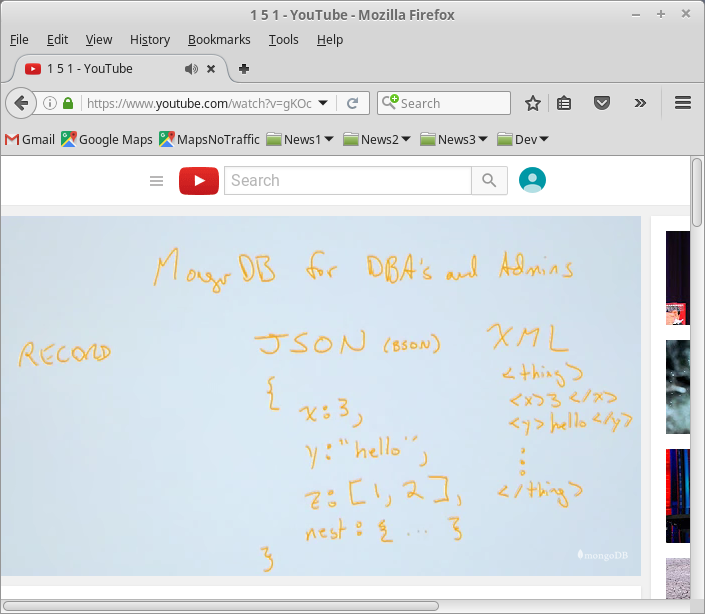 1 5 1 - YouTube - Mozilla Firefox
File Edit View History Bookmarks Tools Help
1 5 1 - YouTube
https://www.youtube.com/watch?v=gKOc
Search
Gmail Google Maps MapsNoTraffic News1 News2 News3 Dev
Search
MongoDB for DBA's and Admins
RECORD JSON (BSON) XML
{ <thing>
x: 3, <x>3</x>
y: "hello", <y>hello</y>
z: [1, 2], </thing>
nest: { ... }
}
mongoDB